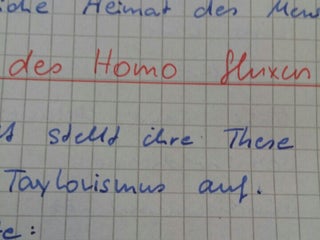 die Heimat des Men
des Homo fluxus
stellt ihre These
Taylorismus auf.